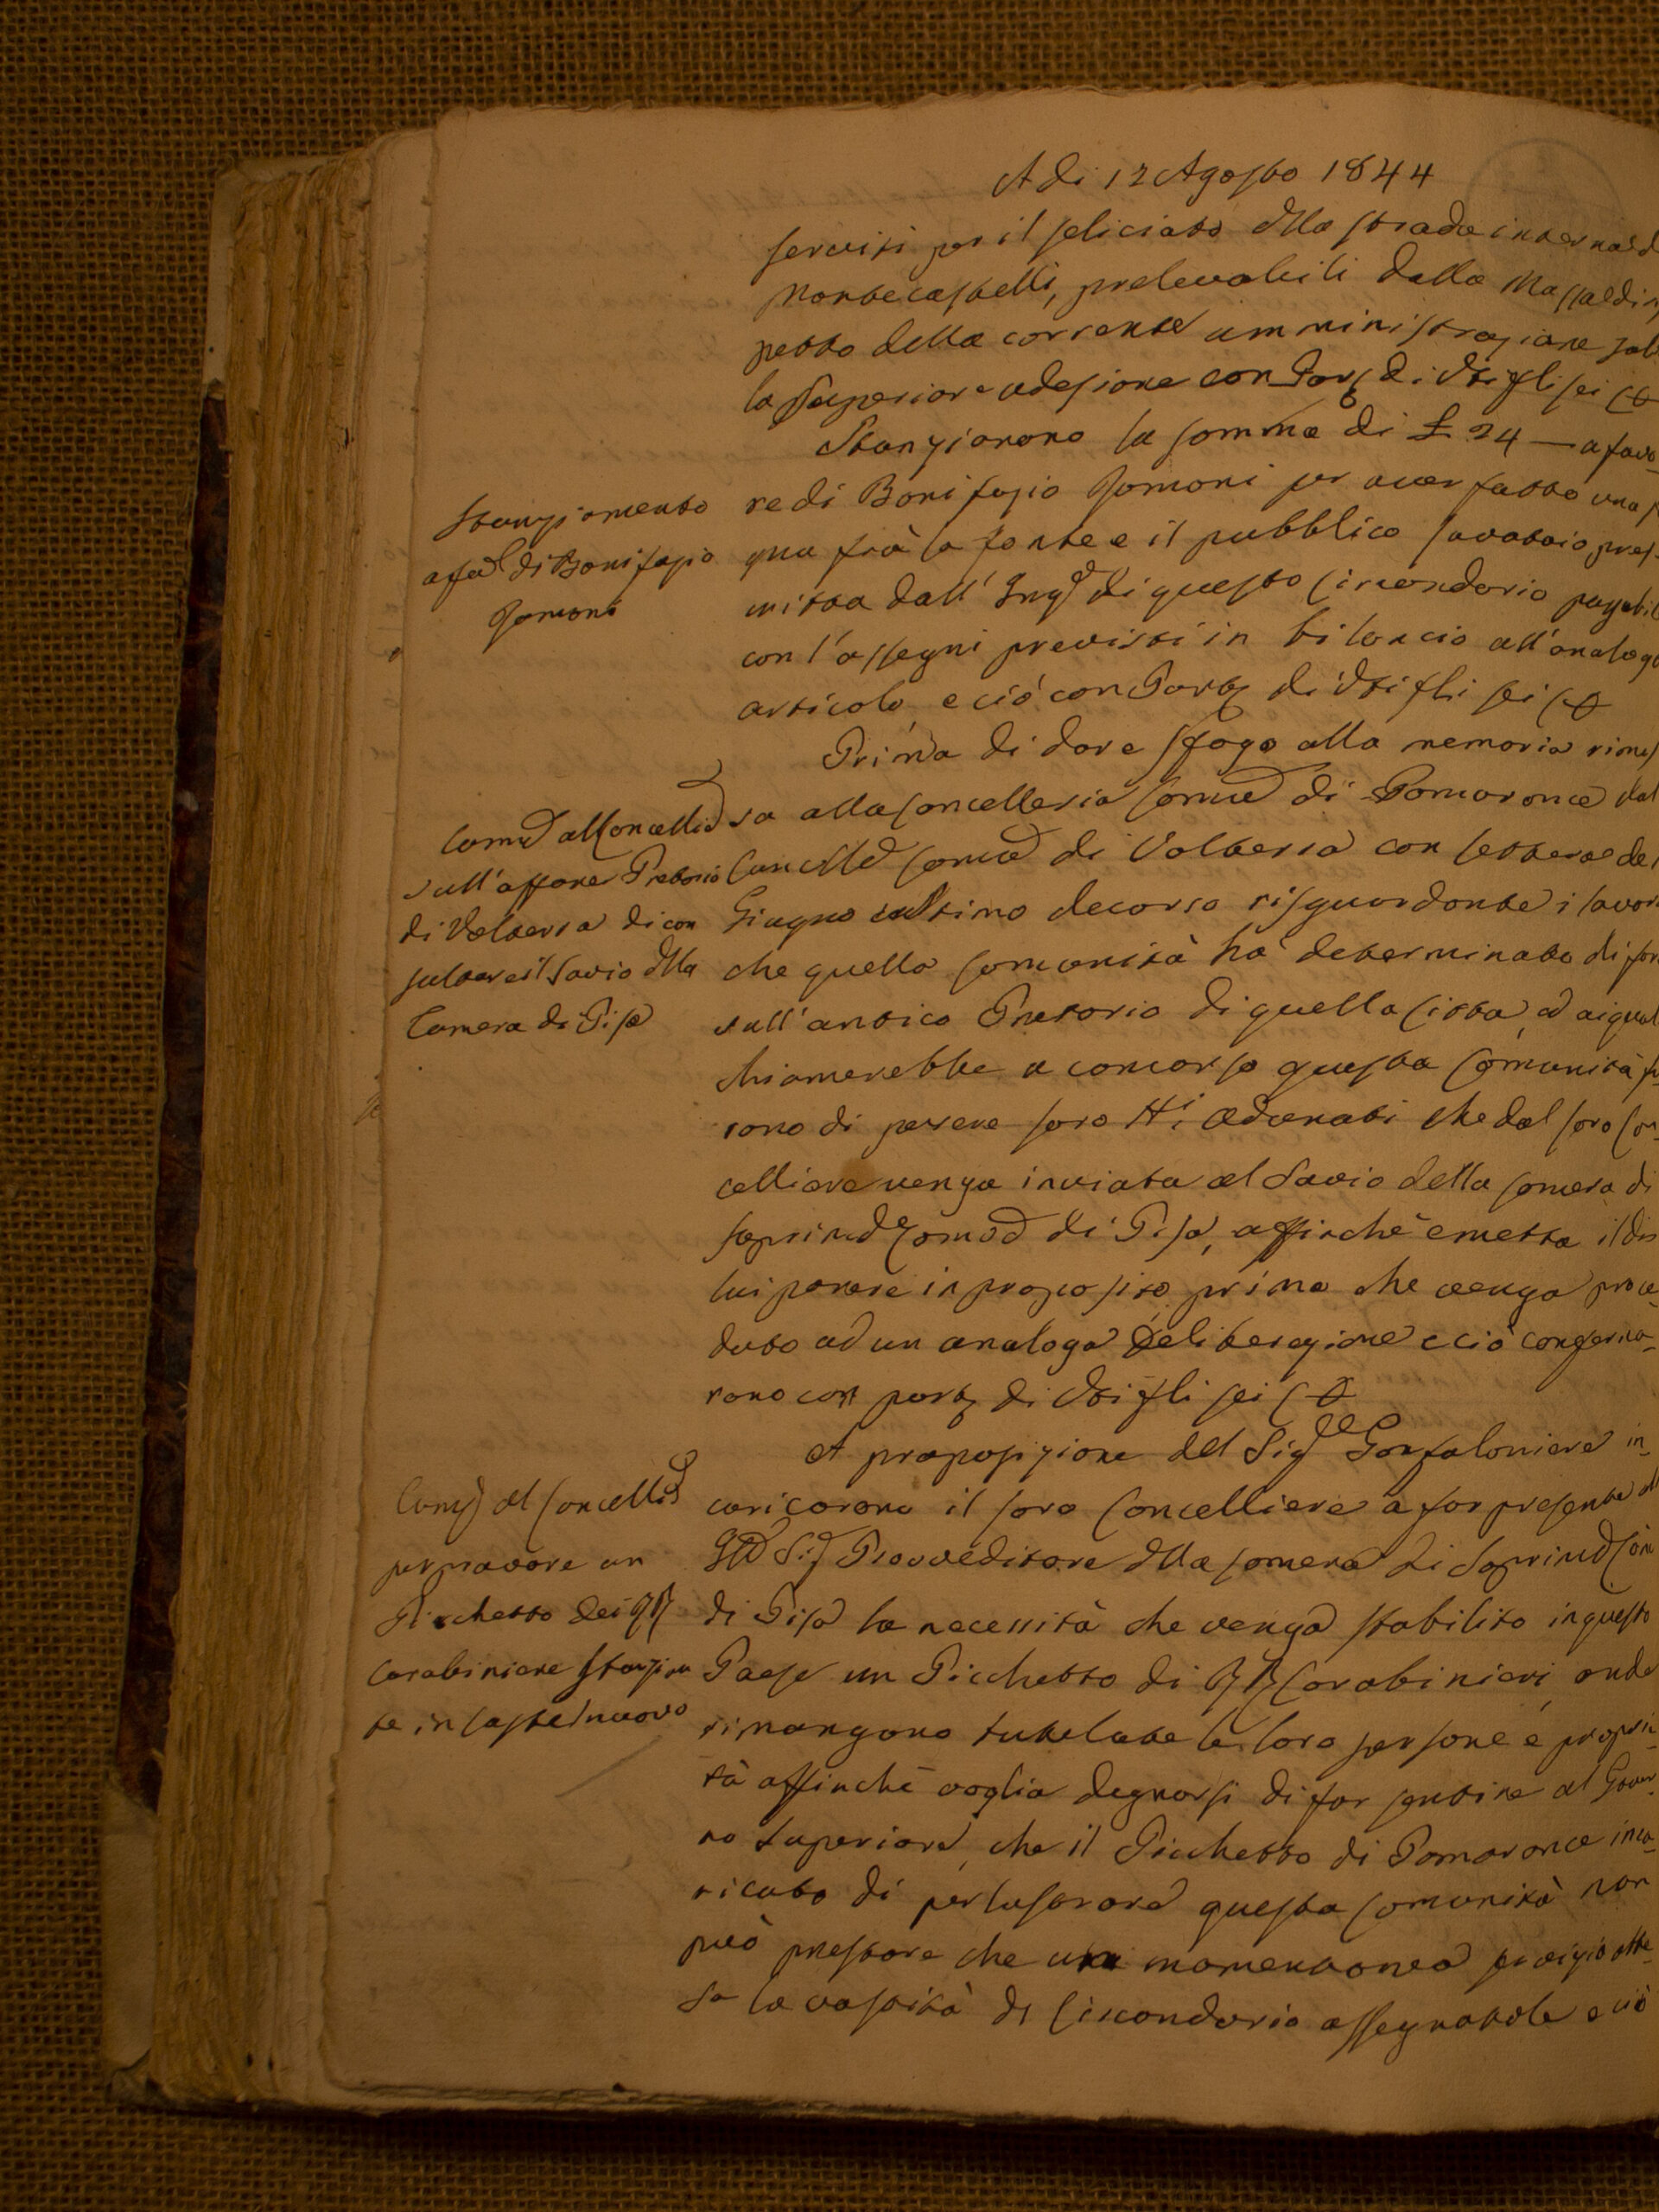 A di 12 Agosto 1844
serviti per il seliciato della strada interna d
Montecastelli, prelevabili dalla Massa di ris
petto della corrente amministrazione sal
la Superiore adesione con Partº di Vti fli sei
Stanziarono la somma di £ 24 — a favo
Stanziamento
a favᵉ di Bonifazio
Gomoni
re di Bonifazio Gomoni per aver fatto una
gna frà la fonte e il pubblico lavatoio, pres
critta dall' Ingᵉ di questo Circondario pagabil
con l'assegni previsti in bilancio all'analogo
articolo e ciò con Partº di Vti fli sei
Prima di dare sfogo alla memoria rimes
Comᵉ al Cancellᵉ
sull'affare Pretorio
di Volterra di con
sultare il Savio della
Camera di Pisa
sa alla Cancelleria Comᵉ di Pomarance dal
Cancellᵉ Comᵉ di Volterra con lettera de
Giugno ultimo decorso risguardante i lavor
che quella Comunità ha determinato di far
sull'antico Pretorio di quella Città, ed ai qual
chiamerebbe a concorso questa Comunità fu
rono di parere loro SSⁱ Adunati che dal loro Can
celliere venga inviata al Savio della Camera di
Soprindᵉ Comᵉ di Pisa, affinchè emetta il di
lui parere in proposito prima che venga proce
duto ad un analoga Deliberazione e ciò conferma
rono con partº di Vti fli sei
A proposizione del Sigᵉ Gonfaloniere in
Comᵉ al Cancellᵉ
per provare un
Picchetto dei RR
Carabiniere stanzian
te in Castelnuovo
caricarono il loro Cancelliere a far presente al
Sigᵉ Provveditore della Camera di Soprindᵉ Com
di Pisa la necessità che venga stabilito in questo
Paese un Picchetto di RR Carabinieri onde
rimangono tutelate le loro persone e proprie
tà affinchè voglia degnarsi di far sentire al Gover
no Superiore, che il Picchetto di Pomarance inca
ricato di perlustrare questa Comunità non
può prestare che un momentaneo servizio atte
sa la vastità di Circondario assegnatole e ciò